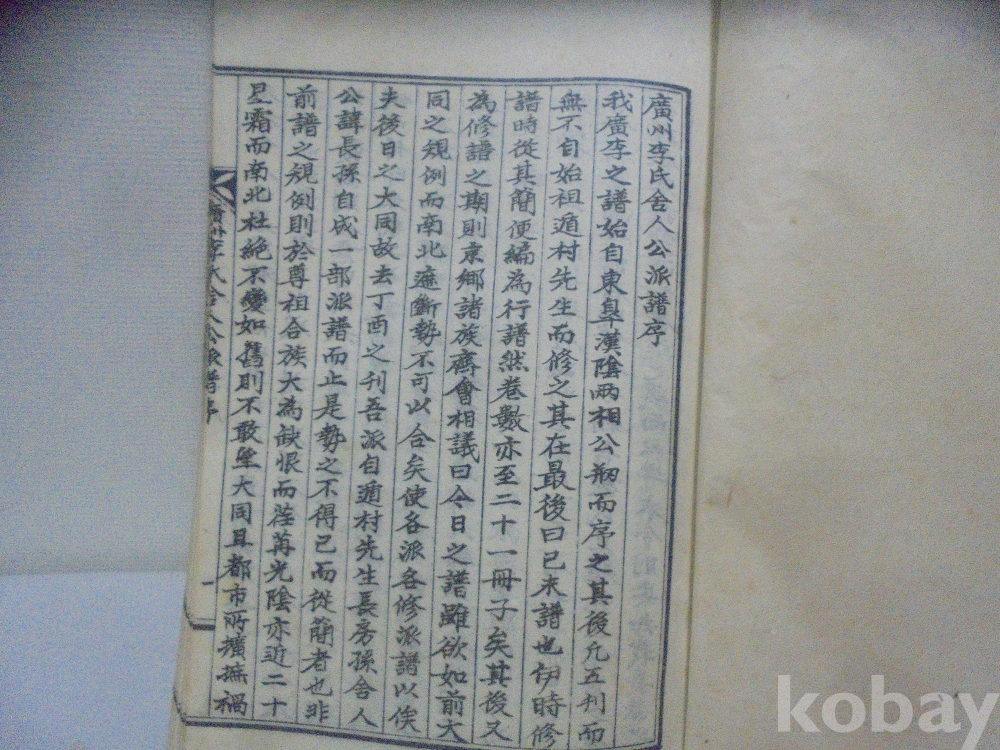 廣州李氏舍人公派譜序
我廣李之譜始自東皐漢陰兩相公刱而序之其後凡五刊而
無不自始祖遁村先生而修之其在最後曰己未譜也伊時修
譜時從其簡便編為行譜然卷數亦至二十一冊子矣其後又
為修譜之期則京鄕諸族齊會相議曰今日之譜雖欲如前大
同之規例而南北遮斷勢不可以合矣使各派各修派譜以俟
夫後日之大同故去丁酉之刊吾派自遁村先生長房孫舍人
公諱長孫自成一部派譜而止是勢之不得已而從簡者也非
前譜之規例則於尊祖合族大為缺恨而荏苒光陰亦近二十
星霜而南北杜絶不變如舊則不敢望大同且都市所擴撫禍
廣州李氏舍人公派譜序
一
kobay